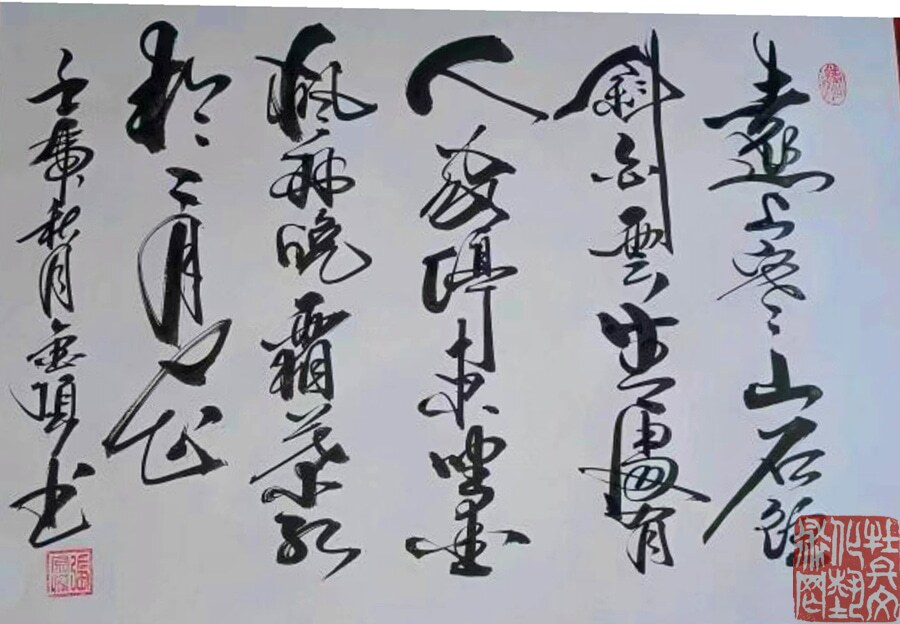 遠上寒山石徑
斜白雲生處有
人家停車坐愛
楓林晚霜葉紅
於二月花
壬虎秋月金頂书